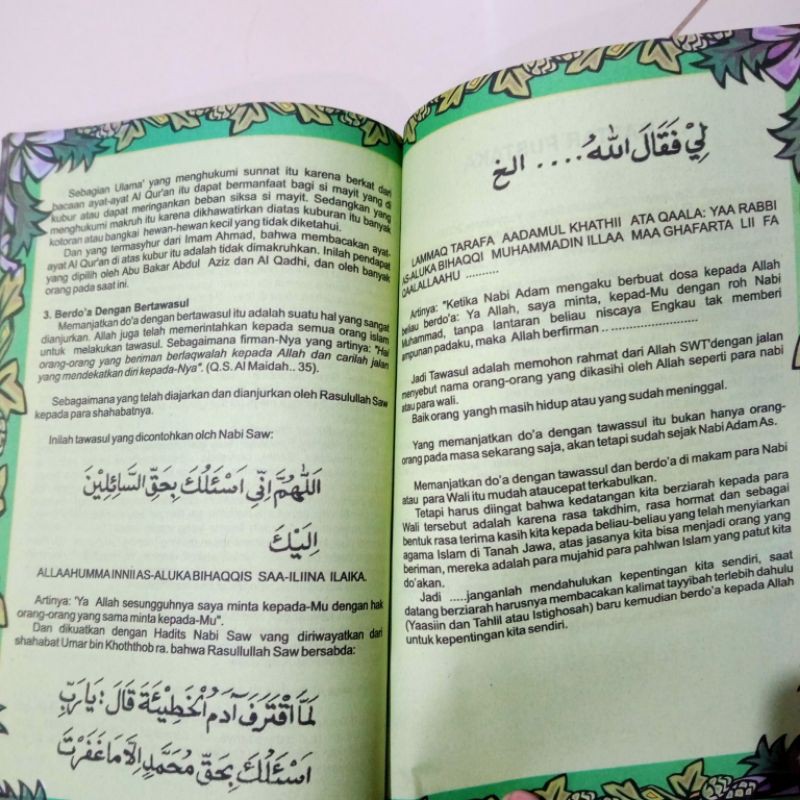 Sebagian Ulama' yang menghukumi sunnat itu karena berkat dari
bacaan ayat-ayat Al Qur'an itu dapat bermanfaat bagi si mayit yang di
kubur atau dapat meringankan beban siksa si mayit. Sedangkan yang
menghukumi makruh itu karena dikhawatirkan diatas kuburan itu banyak
kotoran atau bangkai hewan-hewan kecil yang tidak diketahui.
Dan yang termasyhur dari Imam Ahmad, bahwa membacakan ayat-
ayat Al Qur'an di atas kubur itu adalah tidak dimakruhkan. Inilah pendapat
yang dipilih oleh Abu Bakar Abdul Aziz dan Al Qadhi, dan oleh banyak
orang pada saat ini.
3. Berdo'a Dengan Bertawasul
Memanjatkan do'a dengan bertawasul itu adalah suatu hal yang sangat
dianjurkan. Allah juga telah memerintahkan kepada semua orang islam
untuk melakukan tawasul. Sebagaimana firman-Nya yang artinya: "Hai
orang-orang yang beriman berlaqwalah kepada Allah dan carilah jalan
yang mendekatkan diri kepada-Nya". (Q.S. Al Maidah.. 35).
Sebagaimana yang telah diajarkan dan dianjurkan oleh Rasulullah Saw
kepada para shahabatnya.
Inilah tawasul yang dicontohkan olch Nabi Saw:
اَللّٰهُمَّ اِنِّي اَسْئَلُكَ بِحَقِّ السَّائِلِيْنَ
اِلَيْكَ
ALLAAHUMMA INNII AS-ALUKA BIHAQQIS SAA-ILIINA ILAIKA.
Artinya: 'Ya Allah sesungguhnya saya minta kepada-Mu dengan hak
orang-orang yang sama minta kepada-Mu".
Dan dikuatkan dengan Hadits Nabi Saw vang diriwayatkan dari
shahabat Umar bin Khoththob ra. bahwa Rasullullah Saw bersabda:
لَمَّا اقْتَرَفَ آدَمُ الْخَطِيْئَةَ قَالَ : يَا رَبِّ
اَسْئَلُكَ بِحَقِّ مُحَمَّدٍ اِلَّا مَا غَفَرْتَ
لِيْ فَقَالَ اللهُ .... الخ
LAMMAQ TARAFA AADAMUL KHATHII ATA QAALA: YAA RABBI
AS-ALUKA BIHAQQI MUHAMMADIN ILLAA MAA GHAFARTA LII FA
QAALALLAAHU ..........
Artinya: "Ketika Nabi Adam mengaku berbuat dosa kepada Allah
beliau berdo'a: Ya Allah, saya minta, kepad-Mu dengan roh Nabi
Muhammad, tanpa lantaran beliau niscaya Engkau tak memberi
ampunan padaku, maka Allah berfirman .. ....................
Jadi Tawasul adalah memohon rahmat dari Allah SWT'dengan jalan
menyebut nama orang-orang yang dikasihi oleh Allah seperti para nabi
atau para wali.
Baik orang yangh masih hidup atau yang sudah meninggal.
Yang memanjatkan do'a dengan tawassul itu bukan hanya orang-
orang pada masa sekarang saja, akan tetapi sudah sejak Nabi Adam As.
Memanjatkan do'a dengan tawassul dan berdo'a di makam para Nabi
atau para Wali itu mudah ataucepat terkabulkan.
Tetapi harus diingat bahwa kedatangan kita berziarah kepada para
Wali tersebut adalah karena rasa takdhim, rasa hormat dan sebagai
bentuk rasa terima kasih kita kepada beliau-beliau yang telah menyiarkan
agama Islam di Tanah Jawa, atas jasanya kita bisa menjadi orang yang
beriman, mereka adalah para mujahid para pahlwan Islam yang patut kita
do'akan.
Jadi .....janganlah mendahulukan kepentingan kita sendiri, saat
datang berziarah harusnya membacakan kalimat tayyibah terlebih dahulu
(Yaasiin dan Tahlil atau Istighosah) baru kemudian berdo'a kepada Allah
untuk kepentingan kita sendiri.